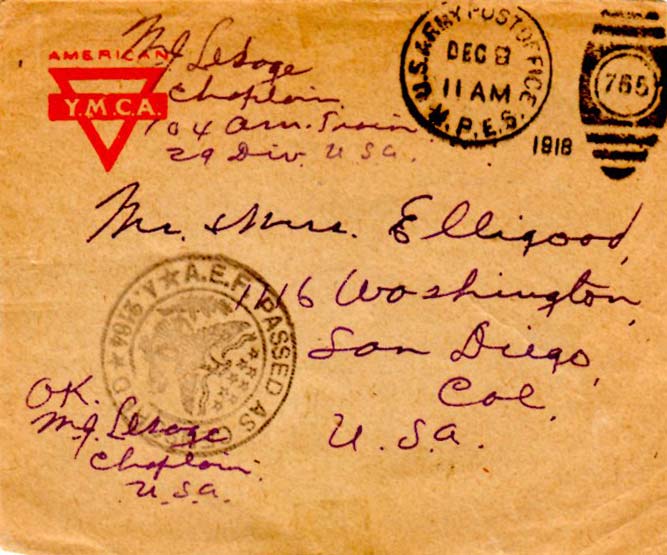 AMERICAN
Y.M.C.A.
M. J. LeSage
Chaplain
104 Am. Train
29 Div. U.S.A.
U.S. ARMY POST OFFICE
DEC 8
11 AM
M.P.E.S.
1918
765
Mr. & Mrs. Elligood,
1116 Washington,
San Diego,
Cal.
U.S.A.
A.E.F. PASSED AS CENSORED
A.2184
OK.
M. J. LeSage
Chaplain.
U.S.A.